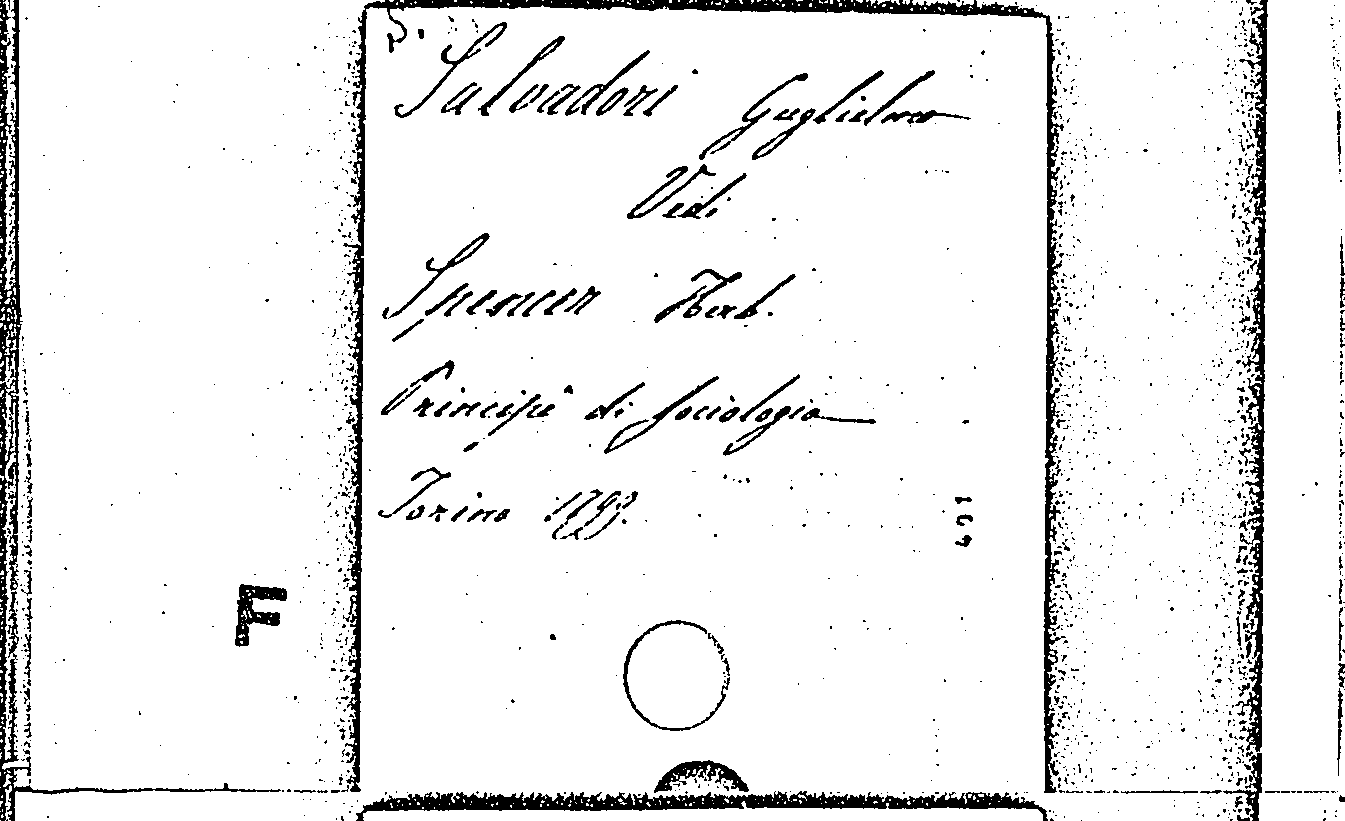 S.
Salvadori Guglielmo
Vedi
Spencer Herb.
Principî di sociologia
Torino
401
F